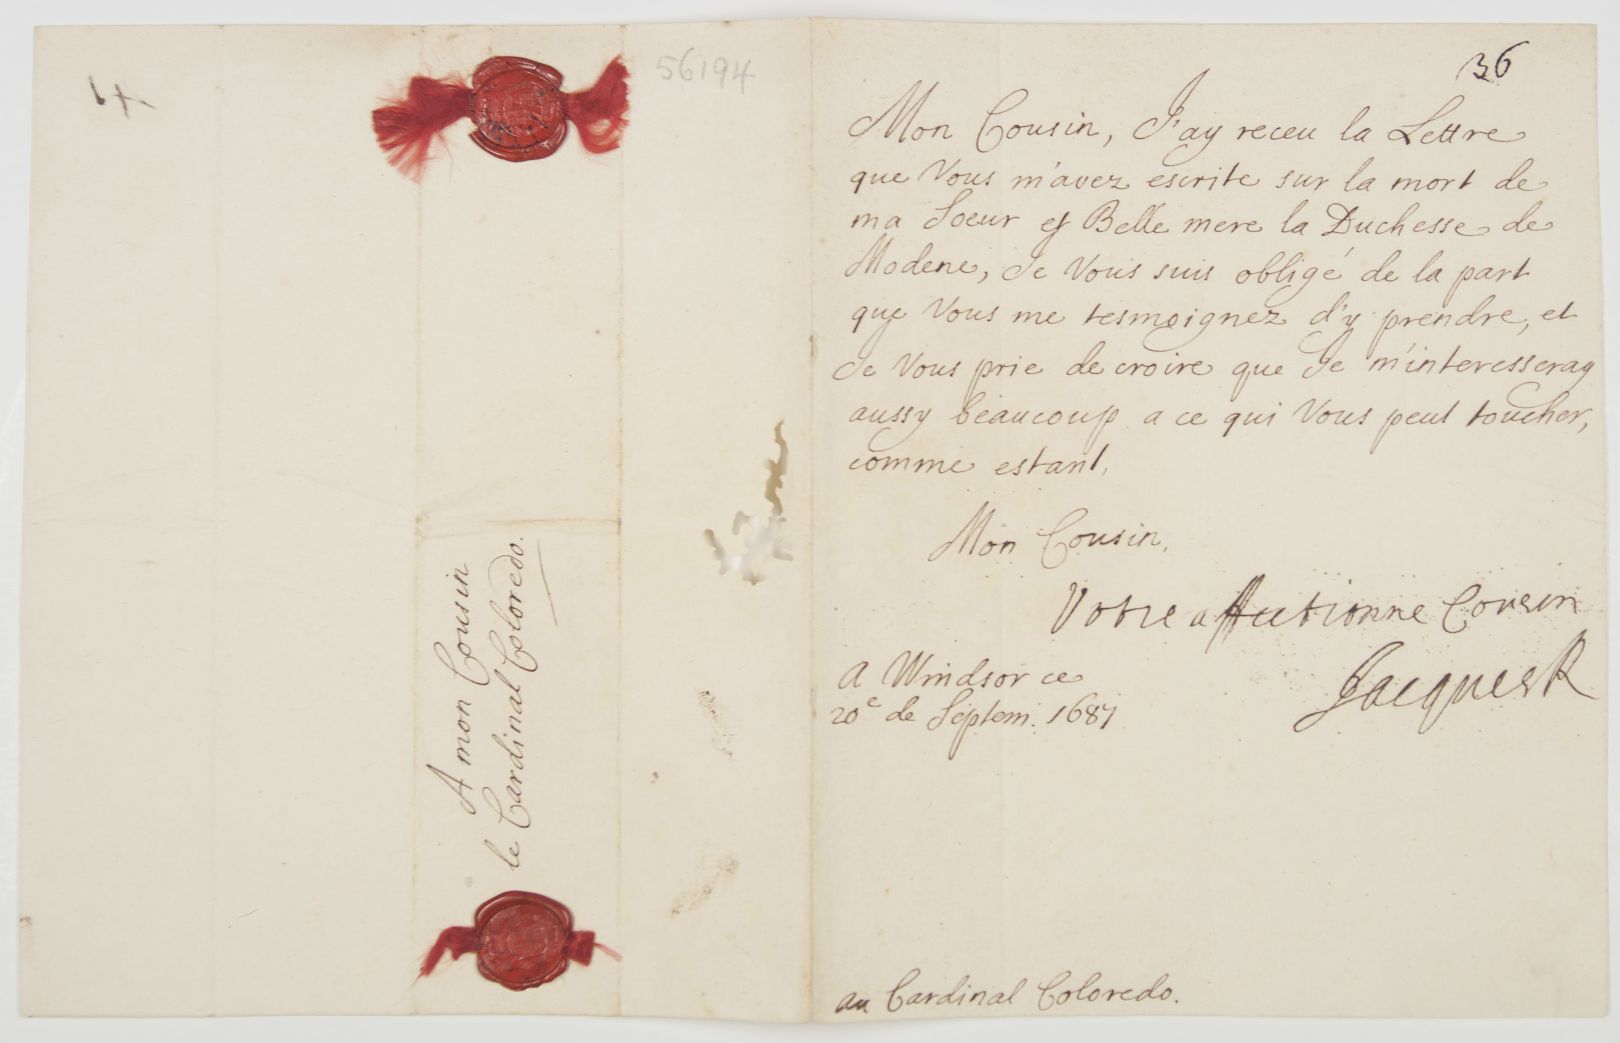 56194
A mon Cousin
le Cardinal Coloredo.
36
Mon Cousin, J'ay receu la Lettre
que Vous m'avez escrite sur la mort de
ma Soeur et Belle mere la Duchesse de
Modene, Je Vous suis obligé de la part
que Vous me tesmoignez d'y prendre, et
Je Vous prie de croire que Je m'interesseray
aussy beaucoup a ce qui Vous peut toucher,
comme estant,
Mon Cousin,
Votre affectionne Cousin
A Windsor ce
Jacques R
20e de Septem. 1687
au Cardinal Coloredo.